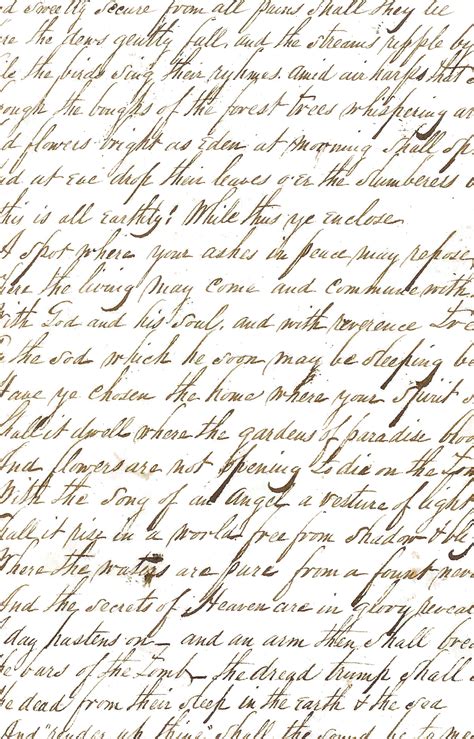 d sweetly secure from all pains shall they lie
re the dews gently fall and the streams ripple by
le the birds sing their rhymes amid air harps that
rough the boughs of the forest trees whispering
d flowers bright as Eden at morning shall sp
nd at Eve drop their leaves o'er the slumberers
this is all Earthly! While thus ye enclose
A spot where your ashes in peace may repose
here the living may come and commune with
With God and his soul, and with reverence
the sod which he soon may be sleeping be
Have ye chosen the home where your Spirit
Shall it dwell where the gardens of paradise blo
And flowers are not opening to die on the To
With the song of an Angel a vesture of light
Shall it rise in a world free from shadow & bl
Where the waters are pure from a fount neve
And the secrets of Heaven are in glory reveal
day hastens on — and an arm then shall brea
he bars of the Tomb — the dread trump shall
he dead from their sleep in the earth & the sea
And "render up thing" shall the sound be to m